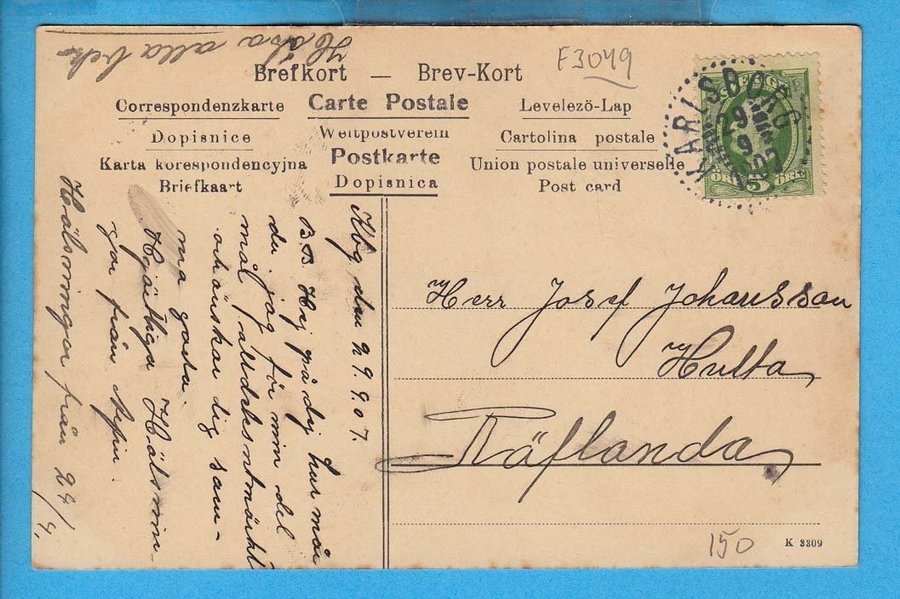 Hälsa alla
F3049
Brefkort — Brev-Kort
Correspondenzkarte Carte Postale Levelezö-Lap
Dopisnice Weltpostverein Cartolina postale
Karta korespondencyjna Postkarte Union postale universelle
Briefkaart Dopisnica Post card
KARLSBORG
29
9
07
5 ÖRE
Kbg den 29.9.07.
B.B. Hej på dig hur mår
du, jag för min del
mår alldeles utmärkt
och önskar dig sam-
ma goda.
Hjärtliga Hälsnin-
gar från
Hälsningar från 29/4.
Herr Josef Johansson
Hulta
Räflanda
150
K 3309